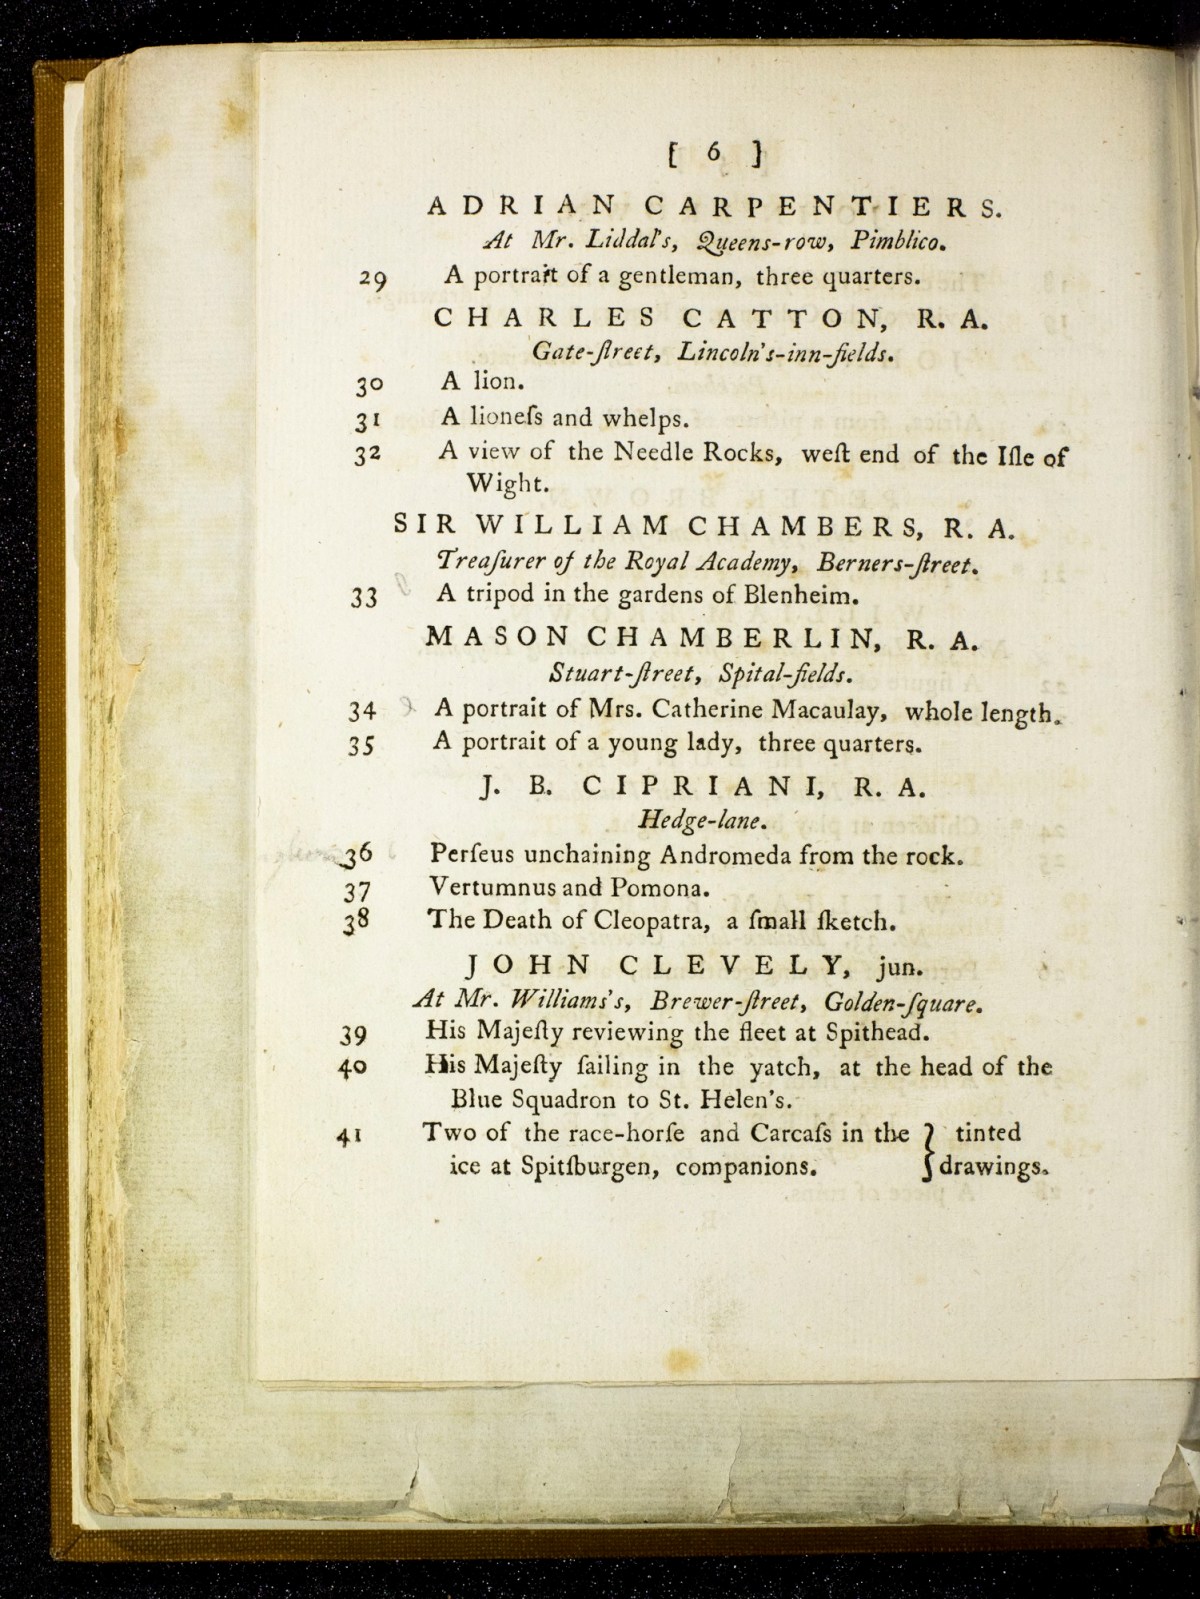 [ 6 ]
ADRIAN CARPENTIERS.
At Mr. Liddal's, Queens-row, Pimblico.
29 A portrait of a gentleman, three quarters.
CHARLES CATTON, R. A.
Gate-ſtreet, Lincoln's-inn-fields.
30 A lion.
31 A lioneſs and whelps.
32 A view of the Needle Rocks, weſt end of the Iſle of
Wight.
SIR WILLIAM CHAMBERS, R. A.
Treaſurer of the Royal Academy, Berners-ſtreet.
33 A tripod in the gardens of Blenheim.
MASON CHAMBERLIN, R. A.
Stuart-ſtreet, Spital-fields.
34 A portrait of Mrs. Catherine Macaulay, whole length.
35 A portrait of a young lady, three quarters.
J. B. CIPRIANI, R. A.
Hedge-lane.
36 Perſeus unchaining Andromeda from the rock.
37 Vertumnus and Pomona.
38 The Death of Cleopatra, a ſmall ſketch.
JOHN CLEVELY, jun.
At Mr. Williams's, Brewer-ſtreet, Golden-ſquare.
39 His Majeſty reviewing the fleet at Spithead.
40 His Majeſty ſailing in the yatch, at the head of the
Blue Squadron to St. Helen's.
41 Two of the race-horſe and Carcaſs in the } tinted
ice at Spitſburgen, companions. } drawings.